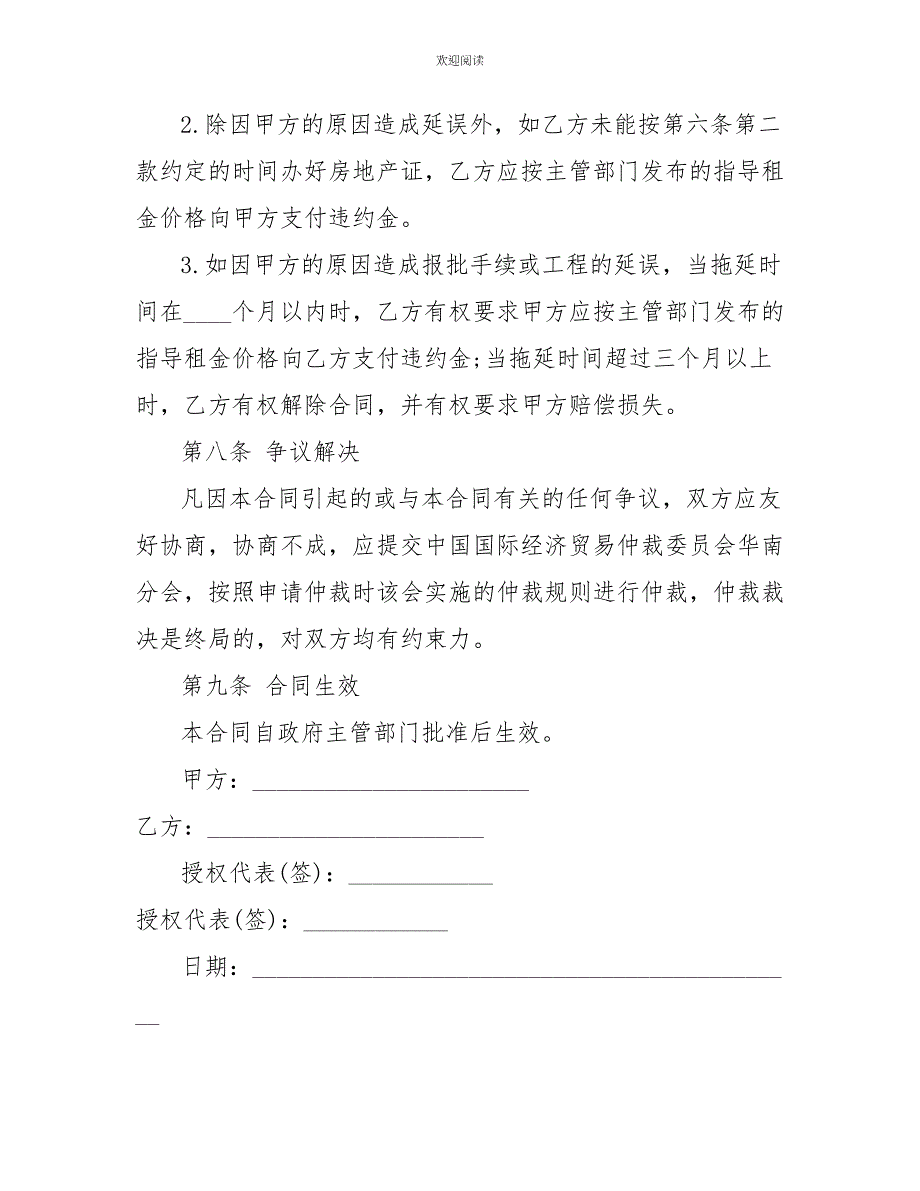 欢迎阅读
2.除因甲方的原因造成延误外，如乙方未能按第六条第二
款约定的时间办好房地产证，乙方应按主管部门发布的指导租
金价格向甲方支付违约金。
3.如因甲方的原因造成报批手续或工程的延误，当拖延时
间在____个月以内时，乙方有权要求甲方应按主管部门发布的
指导租金价格向乙方支付违约金;当拖延时间超过三个月以上
时，乙方有权解除合同，并有权要求甲方赔偿损失。
第八条 争议解决
凡因本合同引起的或与本合同有关的任何争议，双方应友
好协商，协商不成，应提交中国国际经济贸易仲裁委员会华南
分会，按照申请仲裁时该会实施的仲裁规则进行仲裁，仲裁裁
决是终局的，对双方均有约束力。
第九条 合同生效
本合同自政府主管部门批准后生效。
甲方：_______________________
乙方：_______________________
授权代表(签)：____________
授权代表(签)：____________
日期：____________________________________________
__